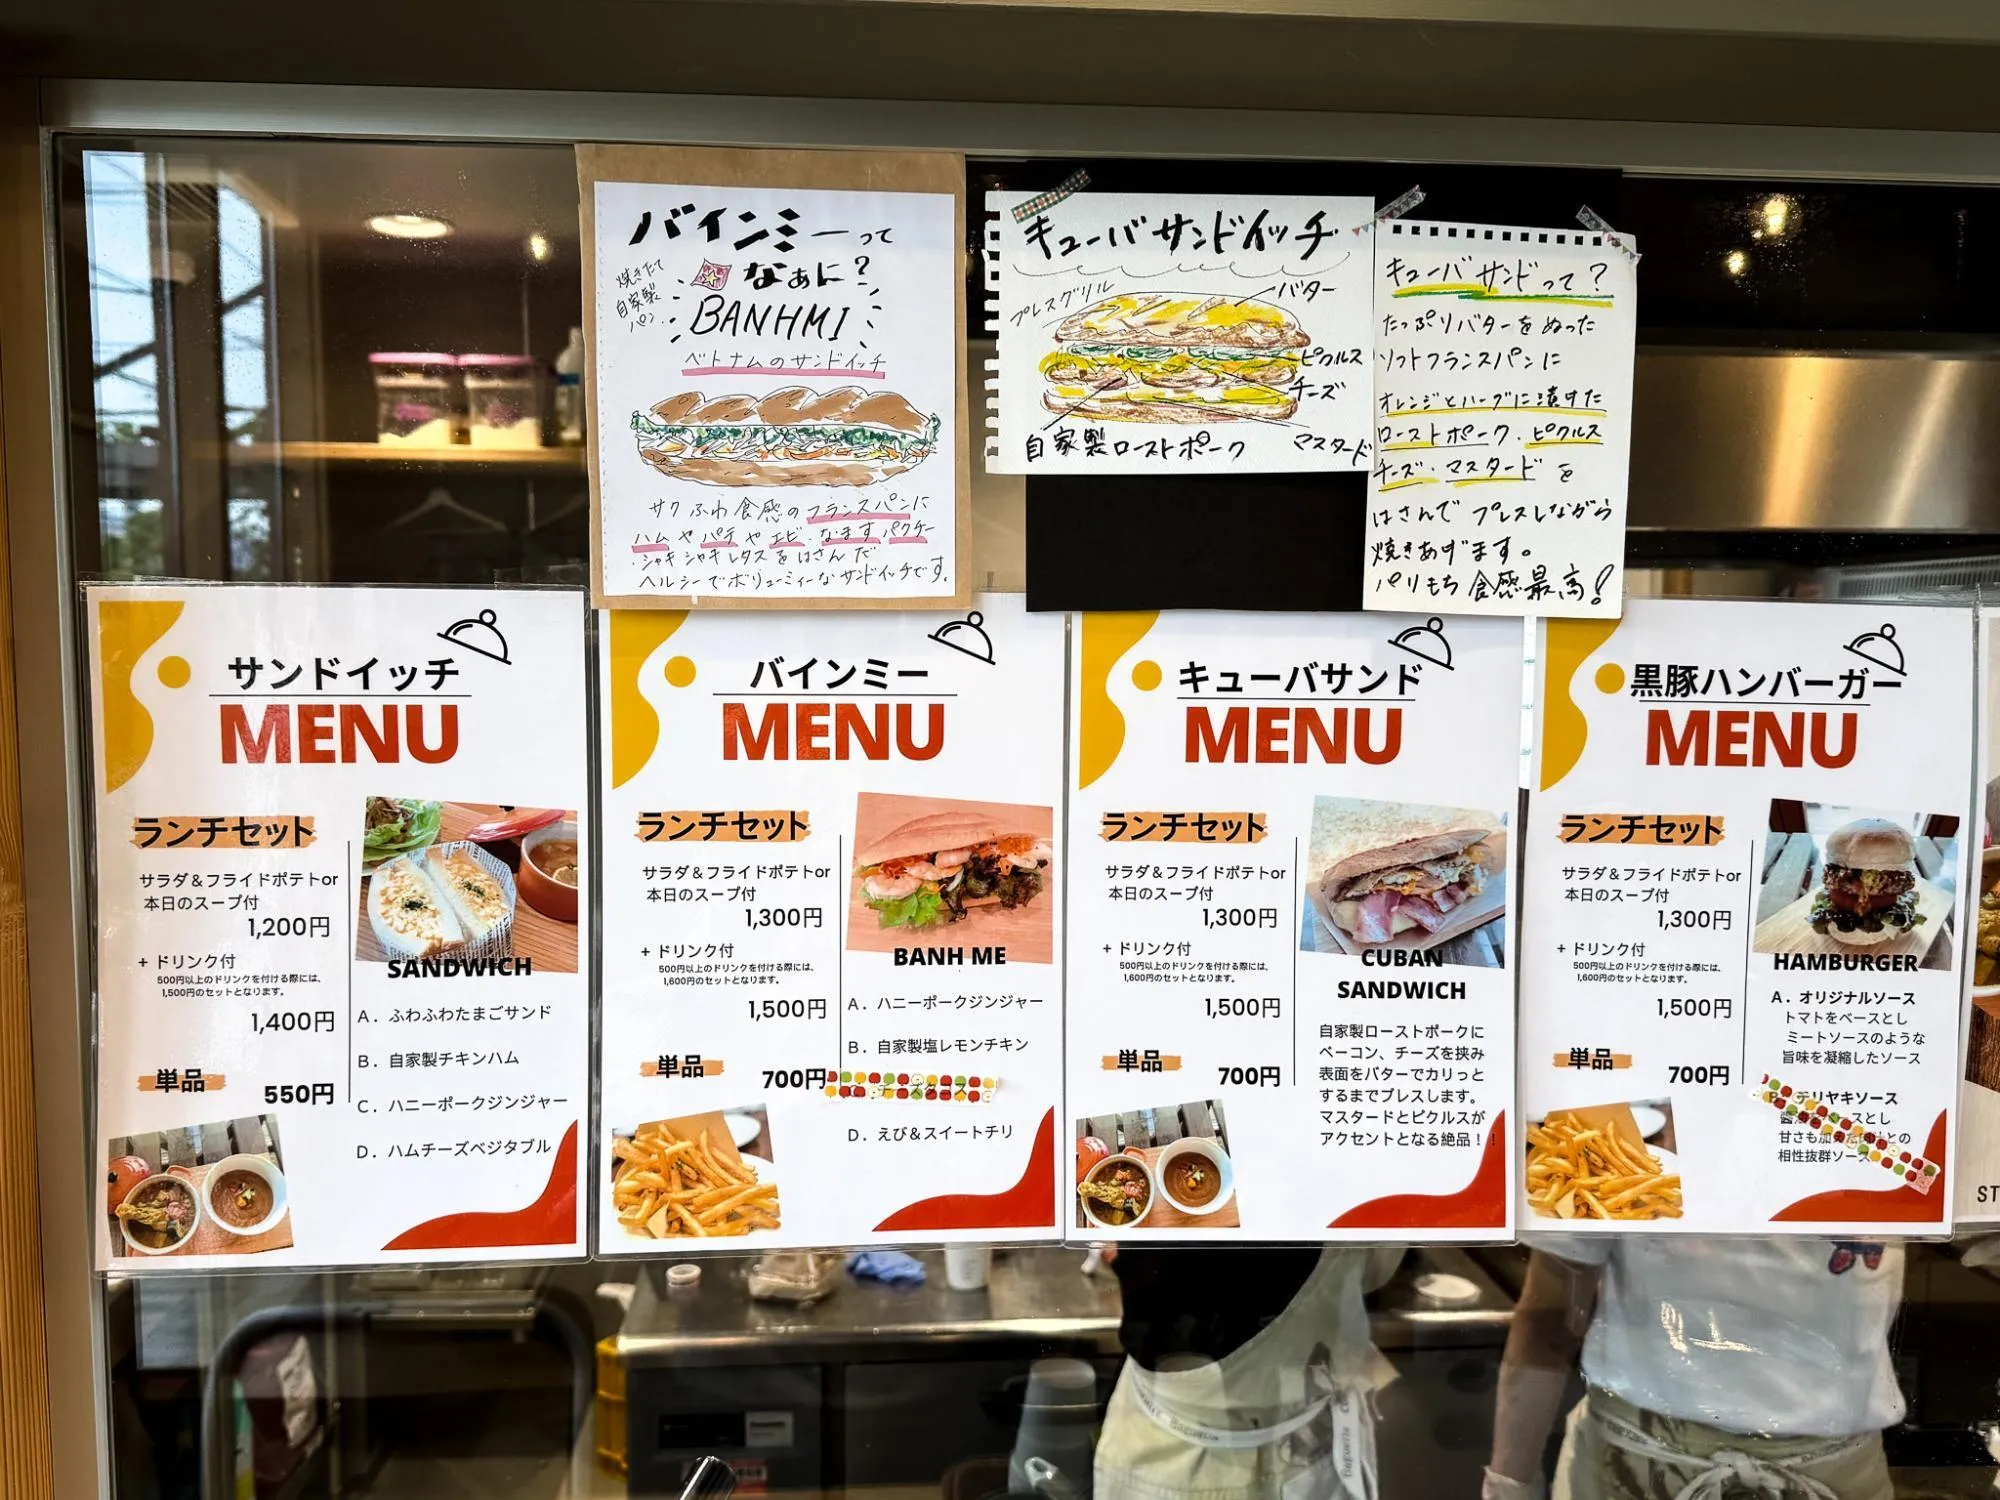 バインミーって
なぁに?
焼きたて
自家製
パン
BANHMI
ベトナムのサンドイッチ
サクふわ食感のフランスパンに
ハムやパテやエビ、なます、パクチー
シャキシャキレタスをはさんだ
ヘルシーでボリューミィーなサンドイッチです。
キューバサンドイッチ
プレスグリル
バター
ピクルス
チーズ
自家製ローストポーク
マスタード
キューバサンドって?
たっぷりバターをぬった
ソフトフランスパンに
オレンジとハーブに漬けた
ローストポーク、ピクルス
チーズ・マスタードを
はさんで プレスしながら
焼きあげます。
パリもち食感最高!
サンドイッチ
MENU
ランチセット
サラダ&フライドポテトor
本日のスープ付
1,200円
+ ドリンク付
500円以上のドリンクを付ける際には、
1,500円のセットとなります。
1,400円
単品
550円
SANDWICH
A. ふわふわたまごサンド
B. 自家製チキンハム
C. ハニーポークジンジャー
D. ハムチーズベジタブル
バインミー
MENU
ランチセット
サラダ&フライドポテトor
本日のスープ付
1,300円
+ ドリンク付
500円以上のドリンクを付ける際には、
1,600円のセットとなります。
1,500円
単品
700円
BANH ME
A. ハニーポークジンジャー
B. 自家製塩レモンチキン
D. えび&スイートチリ
キューバサンド
MENU
ランチセット
サラダ&フライドポテトor
本日のスープ付
1,300円
+ ドリンク付
500円以上のドリンクを付ける際には、
1,600円のセットとなります。
1,500円
単品
700円
CUBAN
SANDWICH
自家製ローストポークに
ベーコン、チーズを挟み
表面をバターでカリっと
するまでプレスします。
マスタードとピクルスが
アクセントとなる絶品!!
黒豚ハンバーガー
MENU
ランチセット
サラダ&フライドポテトor
本日のスープ付
1,300円
+ ドリンク付
500円以上のドリンクを付ける際には、
1,600円のセットとなります。
1,500円
単品
700円
HAMBURGER
A. オリジナルソース
トマトをベースとし
ミートソースのような
旨味を凝縮したソース
テリヤキソース
スとし
甘さも加えた
との
相性抜群ソース
ST